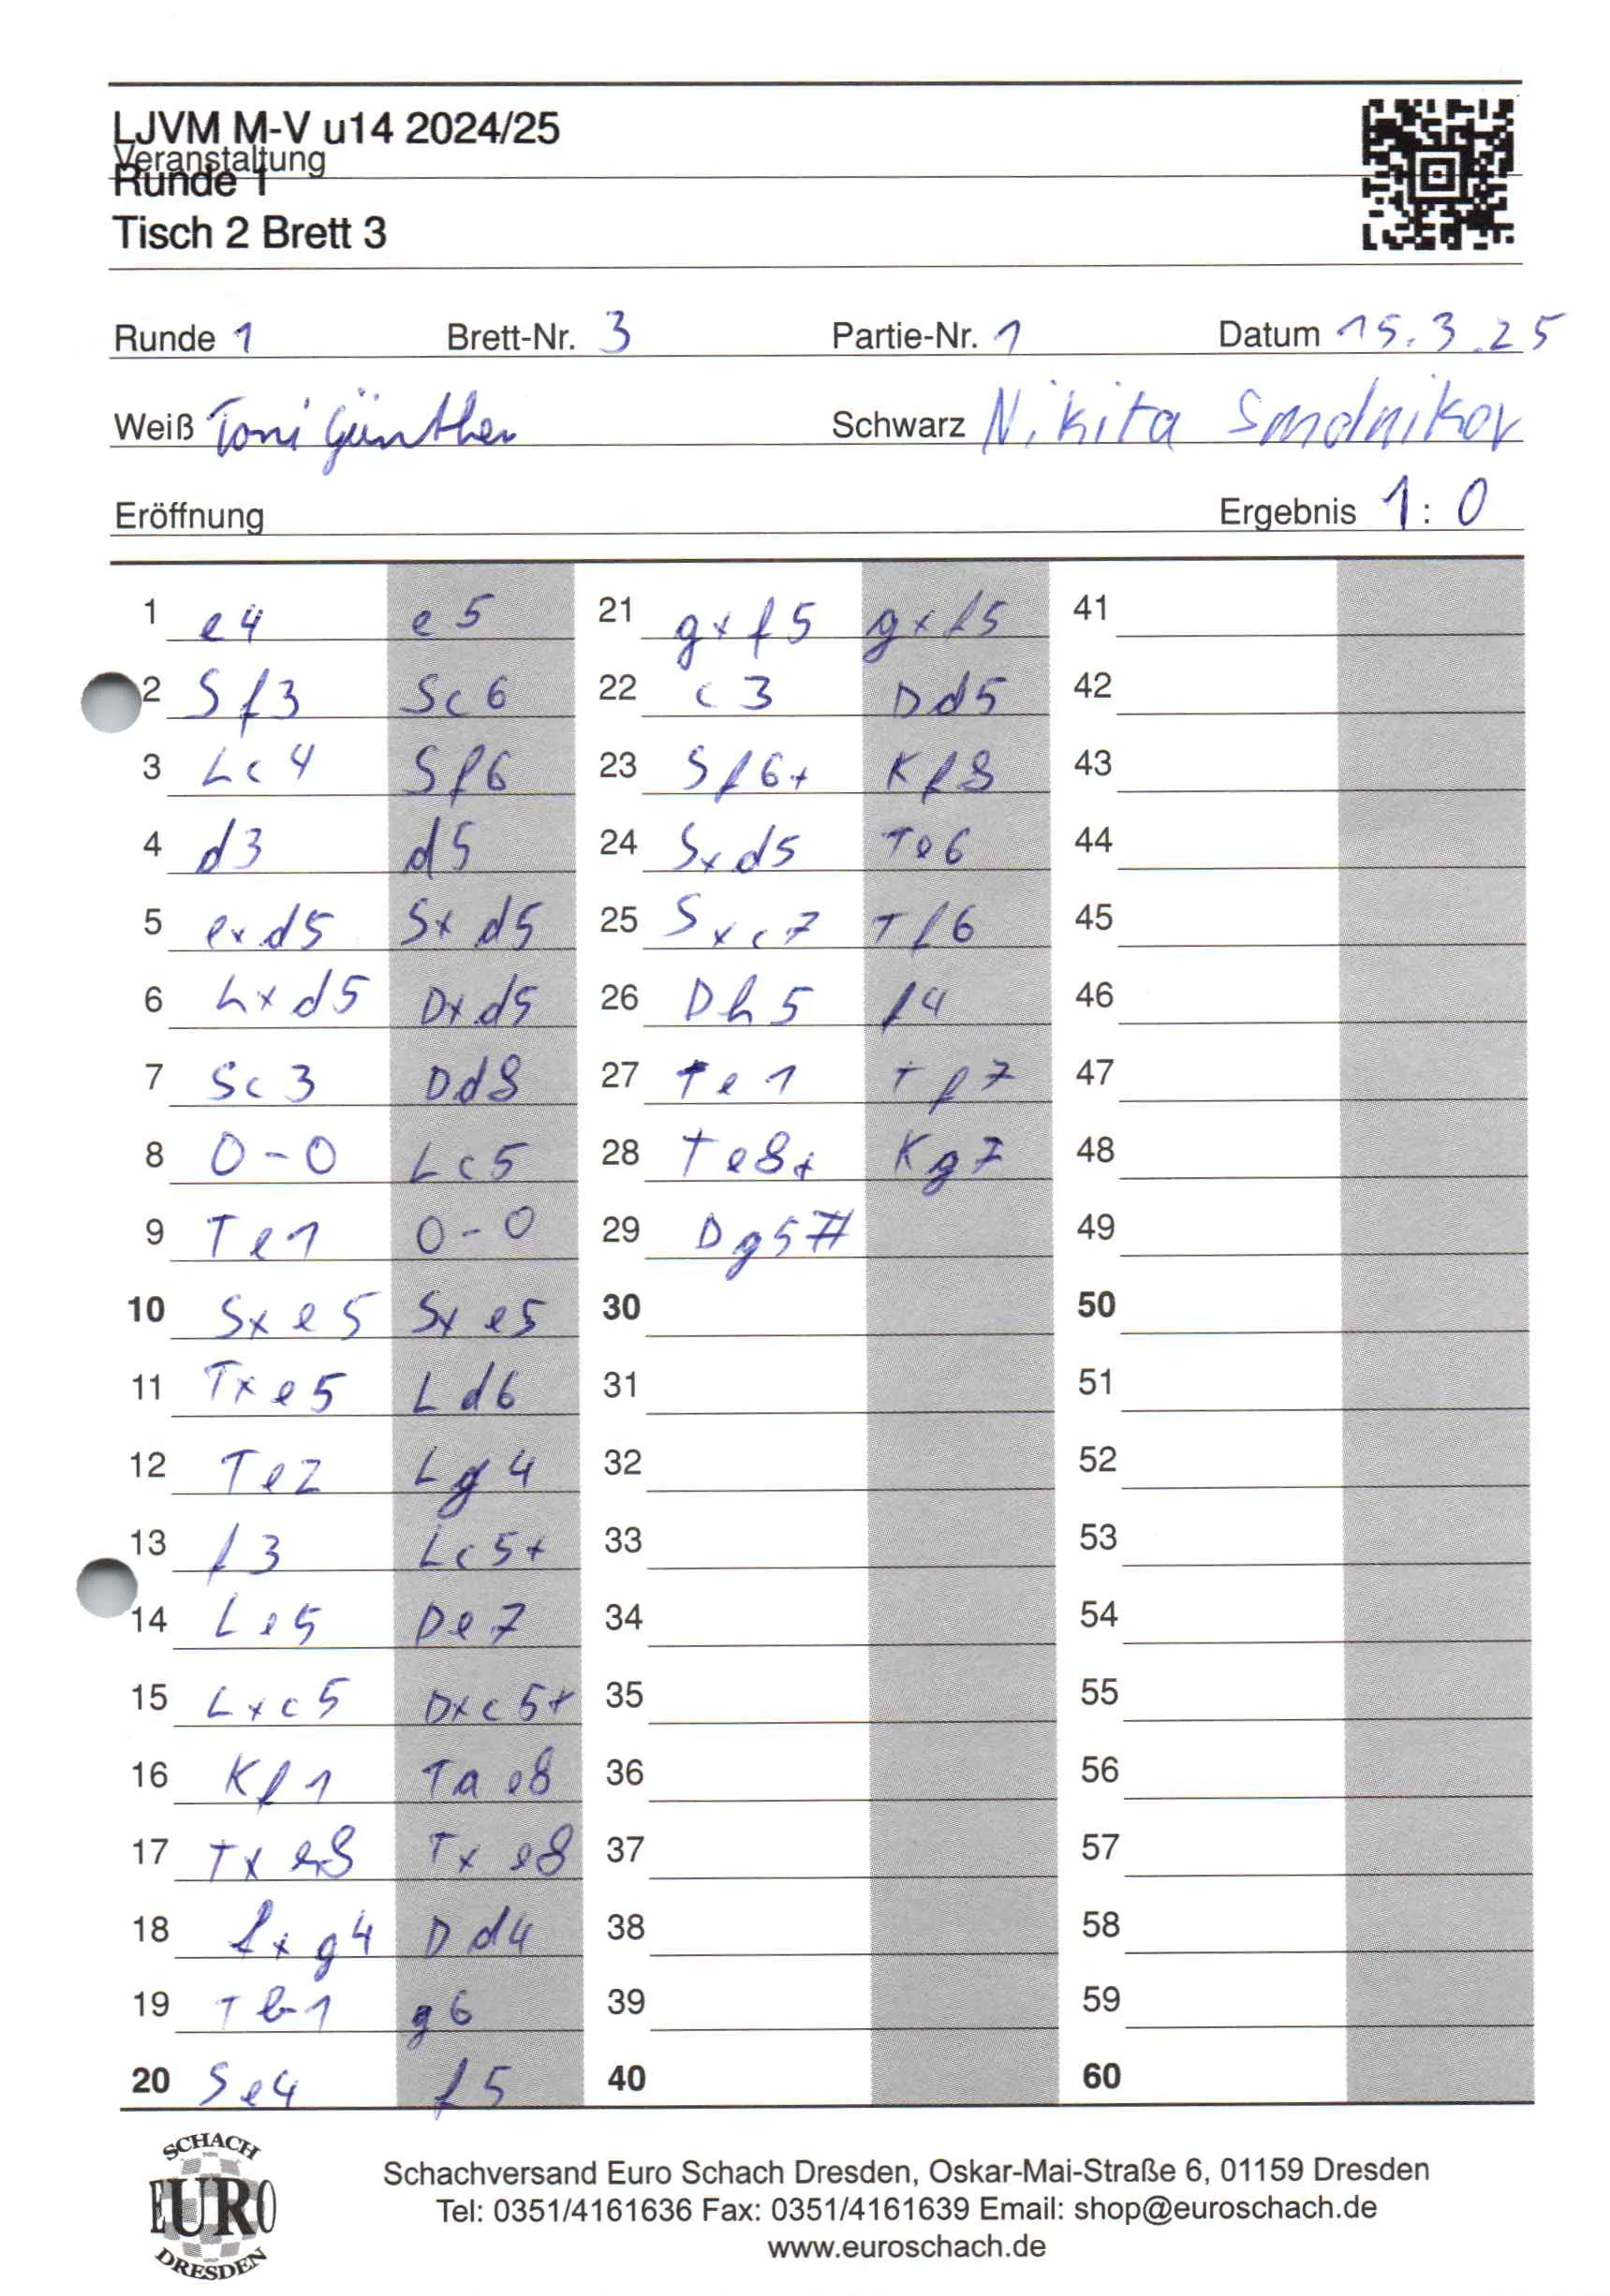 LJVM M-V u14 2024/25
Veranstaltung
Runde 1
Tisch 2 Brett 3
Runde 1 Brett-Nr. 3 Partie-Nr. 1 Datum 15.3.25
Weiß Toni Günther Schwarz Nikita Smolnikov
Eröffnung Ergebnis 1:0
1 e4 e5 21 gxf5 gxf5 41
2 Sf3 Sc6 22 c3 Dd5 42
3 Lc4 Sf6 23 Sf6+ Kf8 43
4 d3 d5 24 Sxd5 Te6 44
5 exd5 Sxd5 25 Sxc7 Tf6 45
6 Lxd5 Dxd5 26 Dh5 f4 46
7 Sc3 Dd8 27 Te1 Tf7 47
8 0-0 Lc5 28 Te8+ Kg7 48
9 Te1 0-0 29 Dg5# 49
10 Sxe5 Sxe5 30 50
11 Txe5 Ld6 31 51
12 Te2 Lg4 32 52
13 f3 Lc5+ 33 53
14 Le5 De7 34 54
15 Lxc5 Dxc5+ 35 55
16 Kf1 Tae8 36 56
17 Txe8 Txe8 37 57
18 fxg4 Dd4 38 58
19 Tb1 g6 39 59
20 Se4 f5 40 60
SCHACH
EURO
DRESDEN
Schachversand Euro Schach Dresden, Oskar-Mai-Straße 6, 01159 Dresden
Tel: 0351/4161636 Fax: 0351/4161639 Email: shop@euroschach.de
www.euroschach.de